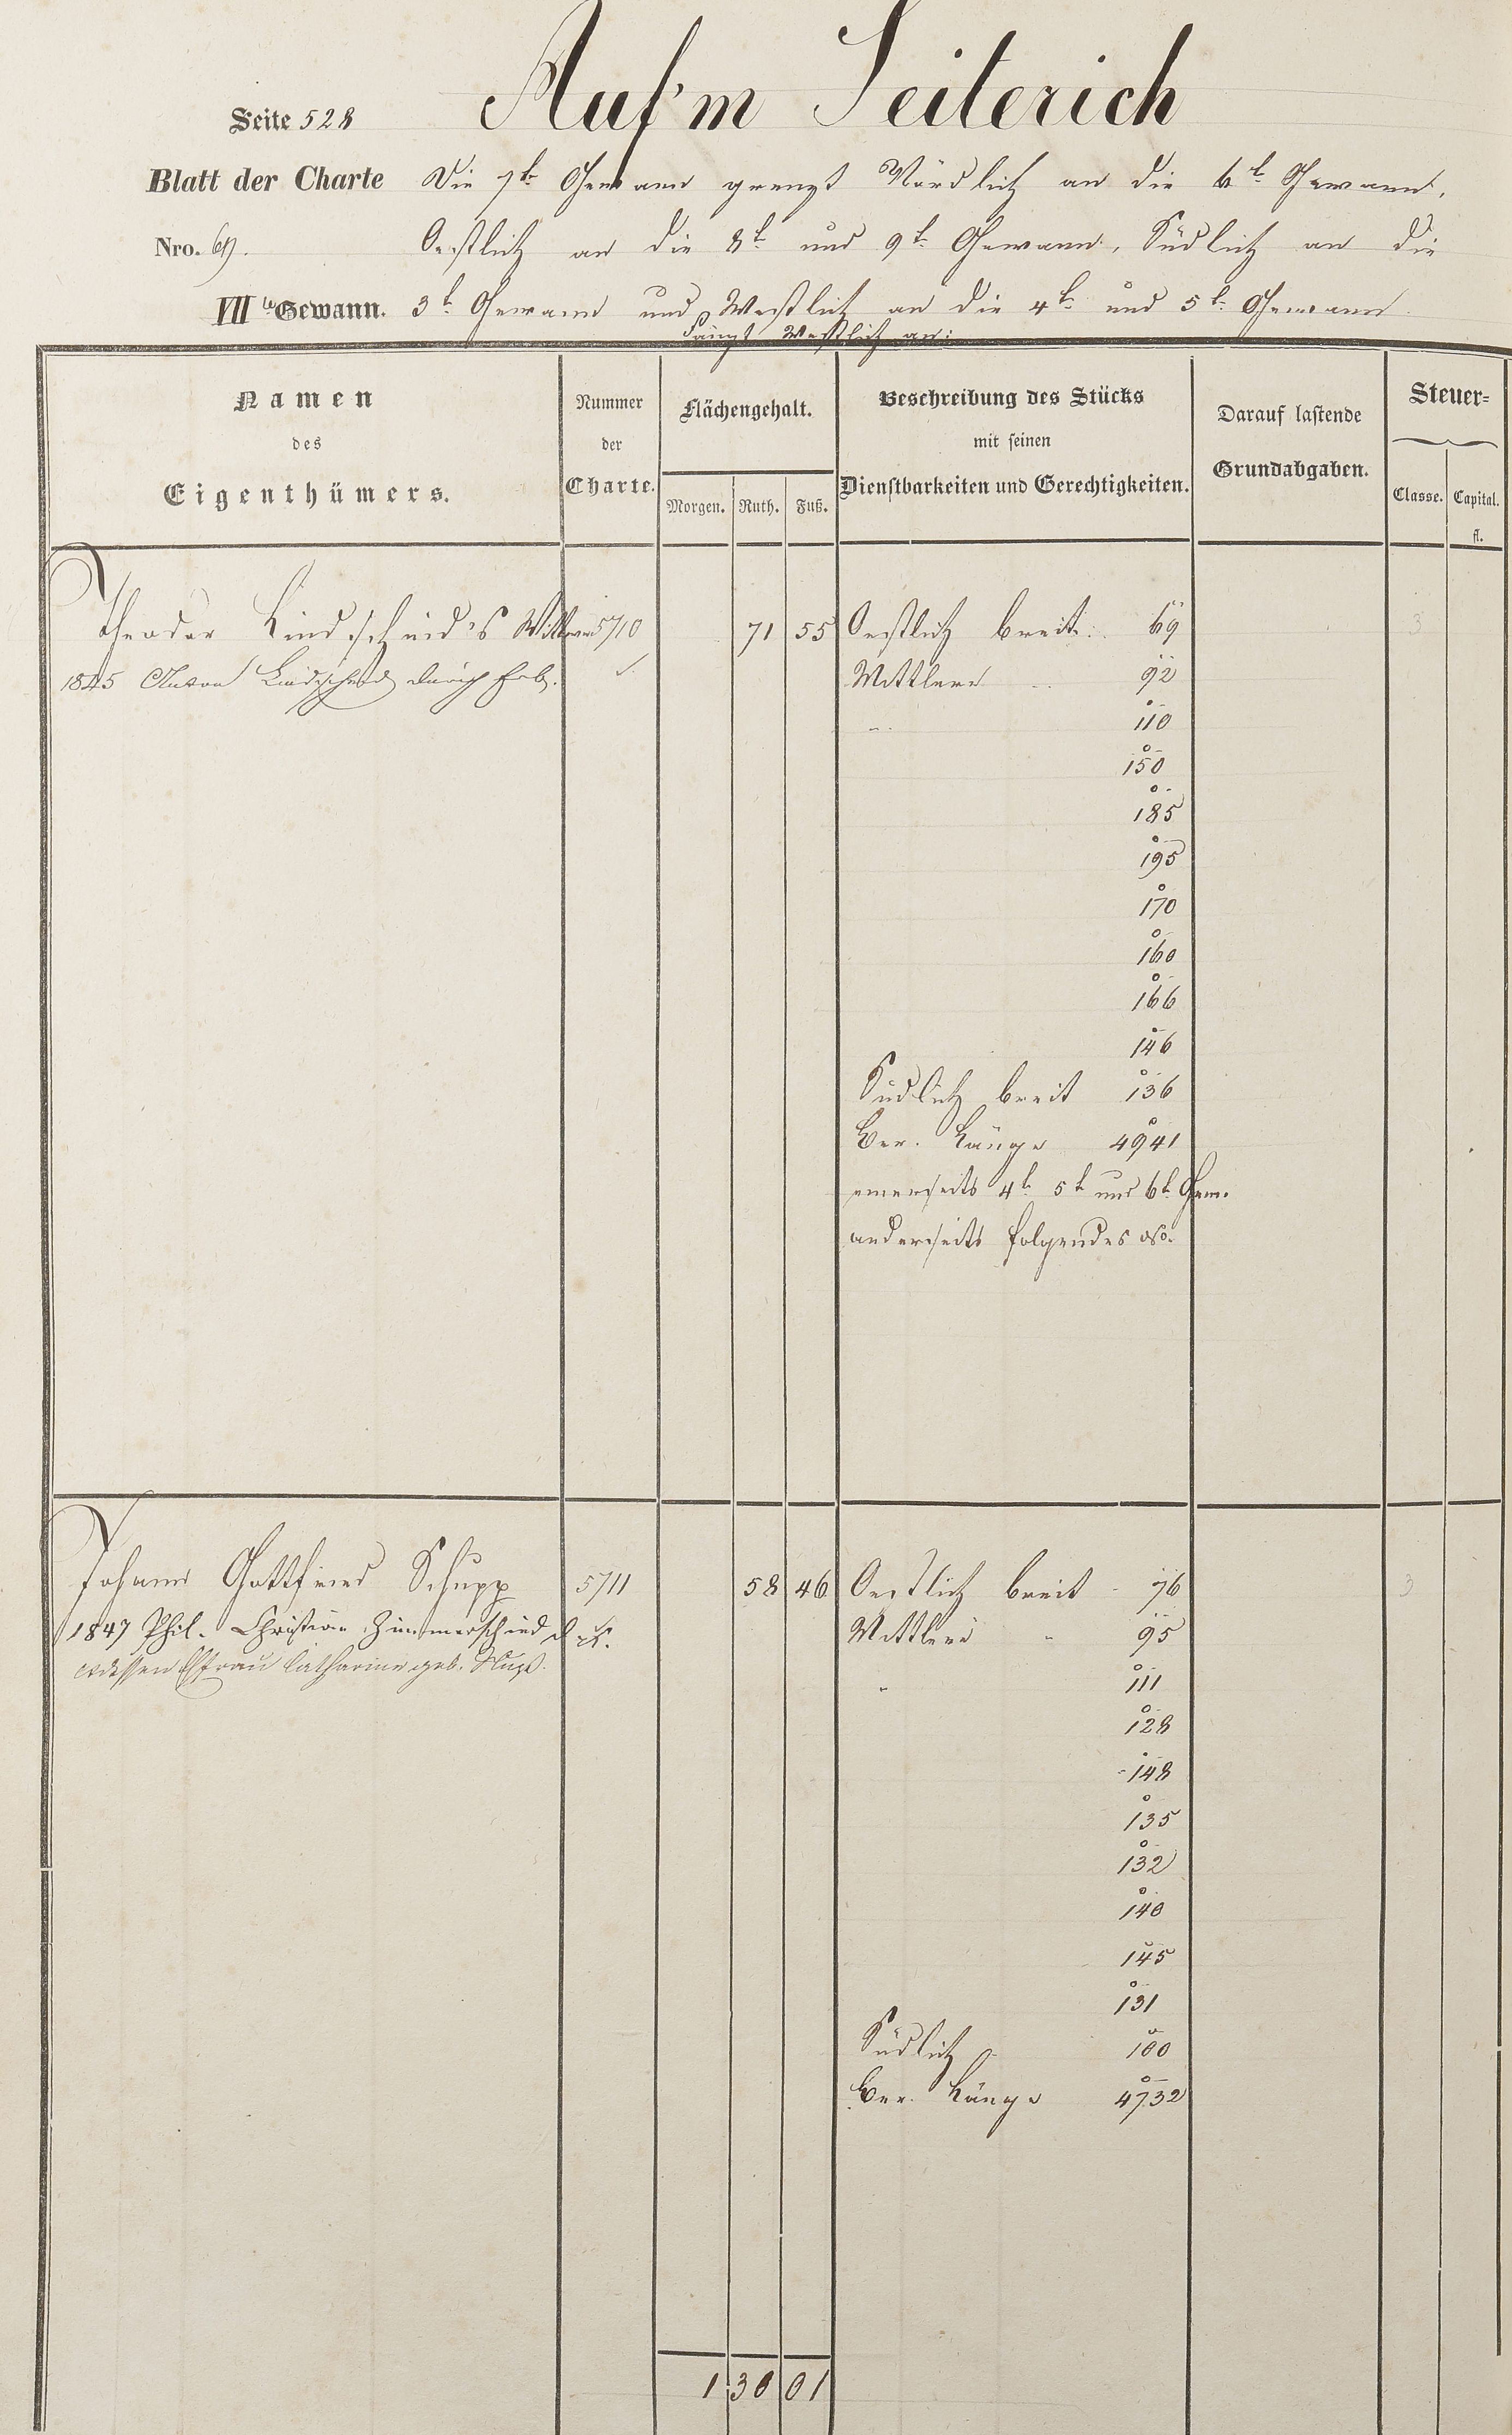 Auf'm Seiterich
Seite 528
Blatt der Charte Die 7te Gewann grenzt Nördlich an die 6te Gewann,
Nro. 69. Oestlich an die 8te und 9te Gewann, Südlich an die
VIIte Gewann. 3te Gewann und Westlich an die 4te und 5te Gewann
Fängt Westlich an:
Namen des Eigenthümers.
Nummer der Charte.
Flächengehalt.
Morgen. Ruth. Fuß.
Beschreibung des Stücks
mit seinen
Dienstbarkeiten und Gerechtigkeiten.
Darauf lastende
Grundabgaben.
Steuer=
Classe. Capital.
fl.
Theodor Lindscheid's Wittwe 5710 71 55 Oestlich breit: 69 3
1845 Anton Lindscheid durch Erb. Mittlere 92
" 110
150
185
195
170
160
166
146
Südlich breit 136
Ber. Länge 4941
einerseits 4te 5te und 6te Gew.
anderseits folgendes
Johann Gottfried Schupp 5711 58 46 Oestlich breit 76 3
1847 Phil. Christian Zimmerschied Mittlere " 95
dessen Efrau Catharine geb.
" 111
128
148
135
132
140
145
131
Südlich 100
Ber. Länge 4732
1 30 01